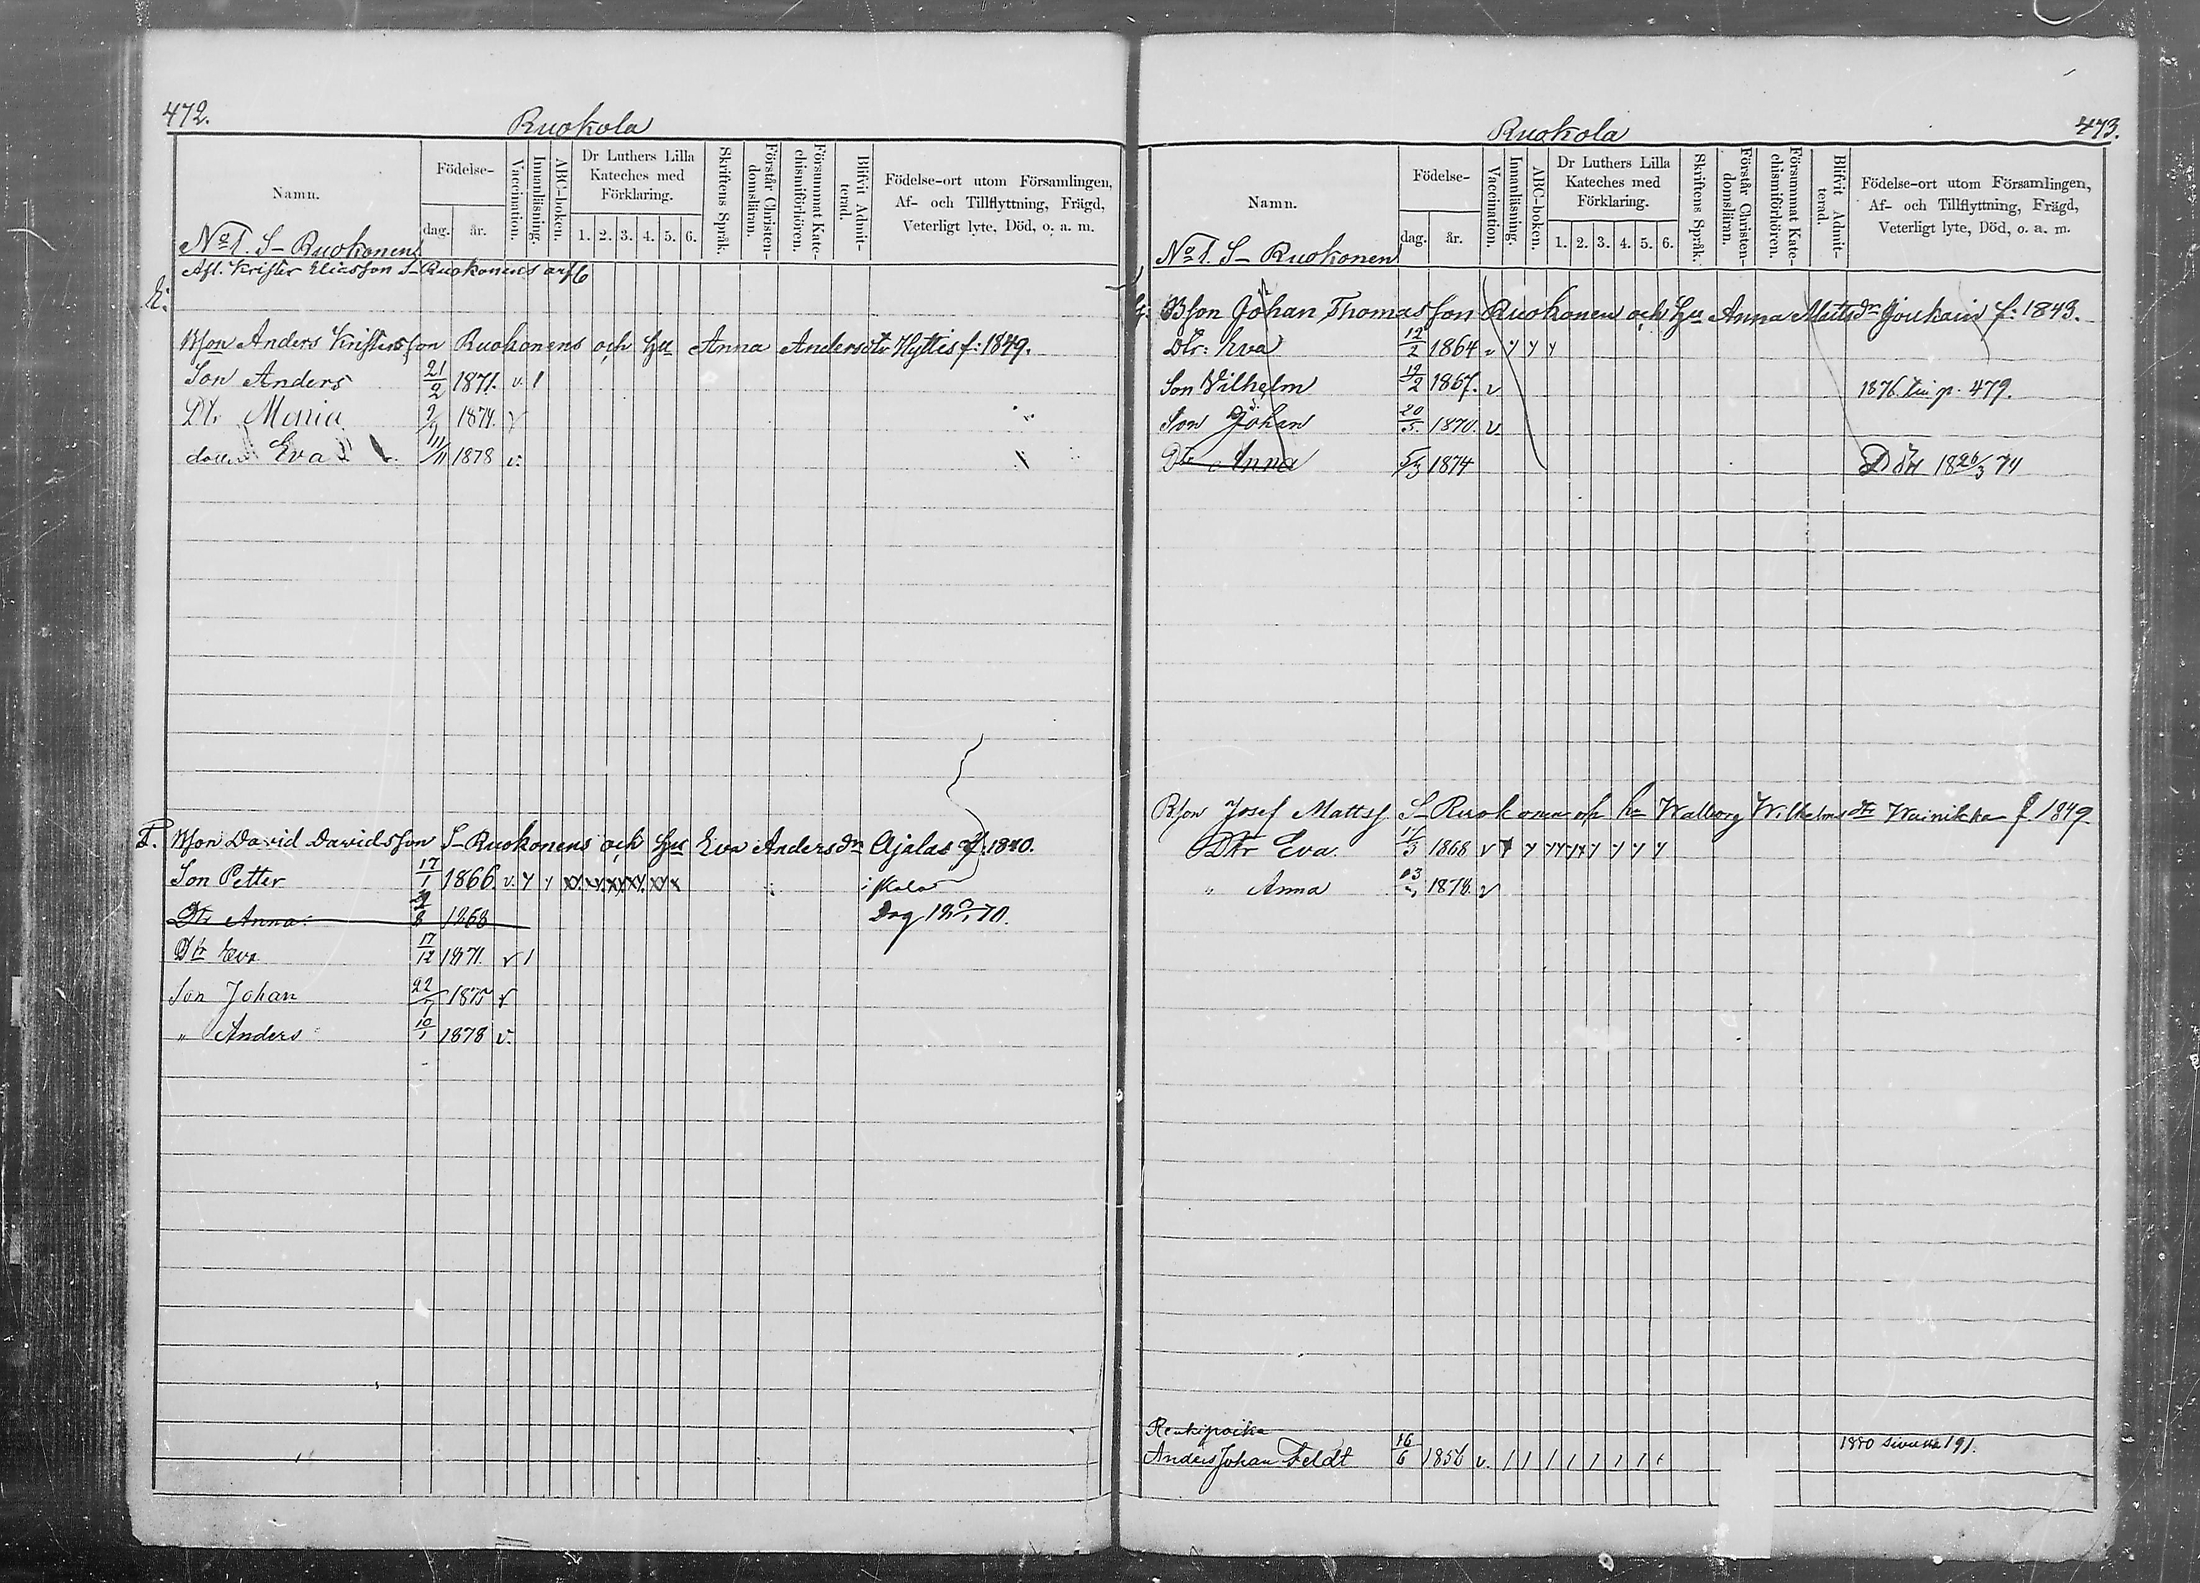 472.
Ruokola
Namn.
Födelse-
dag.
år.
Vaccination.
Innanläsning.
ABC-boken.
Dr Luthers Lilla Kateches med Förklaring.
1. 2. 3. 4. 5. 6.
Skriftens Språk.
Förstår Christen-domsläran.
Försummat Kate-chismiförhören.
Blifvit Admit-terad.
Födelse-ort utom Församlingen,
Af- och Tillflyttning, Frägd,
Veterligt lyte, Död, o. a. m.
No 1. S- Ruokonens
Afl. Krister Eliasson S- Ruokonens arf
Bson Anders Kristersson Ruokonens och Hu Anna Andersdtr Hyttis f: 1849.
Son Anders 21/2 1871. v. 1
Dtr Maria 1874. v
Eva 11/11 1878 v.
P. Bson David Davidsson S- Ruokonens och Hu Eva Andersdr Ajalas f: 1840.
Son Petter 17/1 1866. v. y y xx xx xx xx x i skola
Dtr Anna. 2/8 1868 Dog 70.
Dtr Eva 17/12 1871. v 1
Son Johan 22/7 1875 v
" Anders 10/1 1878 v.
473.
Ruokola
Namn.
Födelse-
dag.
år.
Vaccination.
Innanläsning.
ABC-boken.
Dr Luthers Lilla Kateches med Förklaring.
1. 2. 3. 4. 5. 6.
Skriftens Språk.
Förstår Christen-domsläran.
Försummat Kate-chismiförhören.
Blifvit Admit-terad.
Födelse-ort utom Församlingen,
Af- och Tillflyttning, Frägd,
Veterligt lyte, Död, o. a. m.
No 1. S- Ruokonen
Bson Johan Thomasson Ruokonen och Hu Anna Mattsdr Joukain f: 1843.
Dtr: Eva 12/2 1864 v y y y
Son Vilhelm 12/2 1867. v 1876 p. 479.
Son Johan 20/5. 1870. v.
Dtr Anna 5/3 1874 Död 18 26/3 74
Bson Josef Mattss S- Ruokonen och hu Walborg Wilhelmsdtr Wainikka f 1849
Dtr Eva. 11/3 1868 v y y yy yy y y y y
" Anna 1878. v
Renkipoika
Anders Johan Feldt 16/6 1856 v. 1 1 1 1 1 1 1 1 1880 sivulla 191.